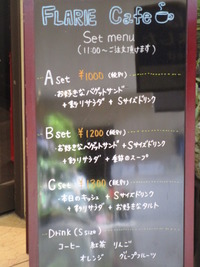 FLARIE Cafe
Set menu
(11:00〜ご注文頂けます)
A set ¥1000 (税別)
お好きなバゲットサンド
+ 彩りサラダ + Sサイズドリンク
B set ¥1200 (税別)
お好きなバゲットサンド + Sサイズドリンク
+ 彩りサラダ + 季節のスープ
C set ¥1300 (税別)
本日のキッシュ + Sサイズドリンク
+ 彩りサラダ + お好きなタルト
Drink (S size)
コーヒー 紅茶 りんご
オレンジ グレープフルーツ